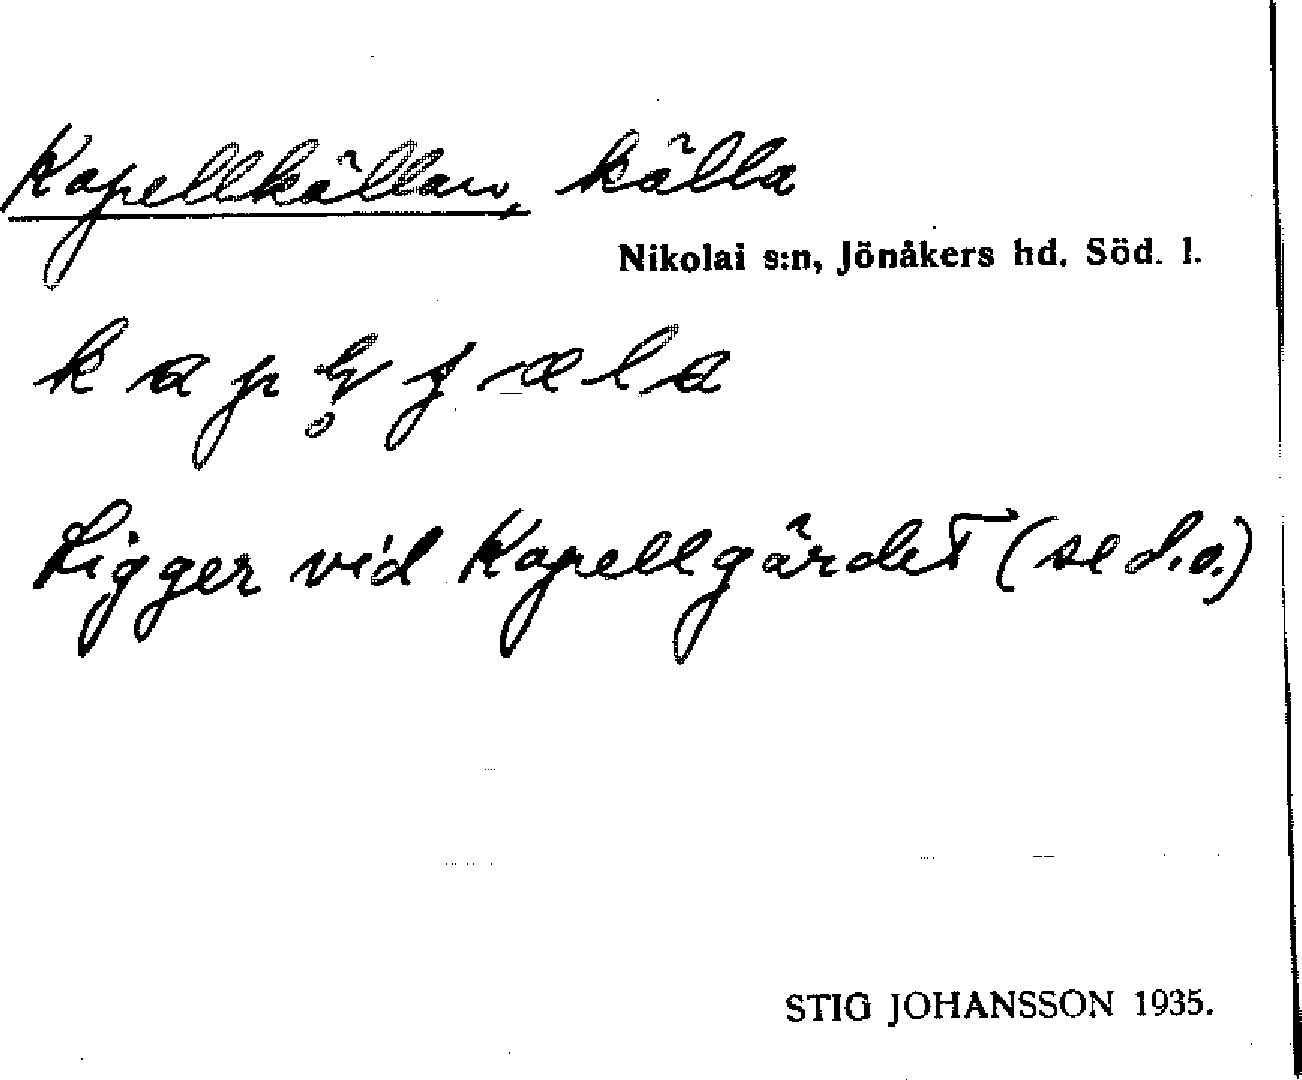 Kapellkällan, källa
Nikolai s:n, Jönåkers hd. Söd. l.
Ligger vid Kapellgärdet (se d.o.)
STIG JOHANSSON 1935.